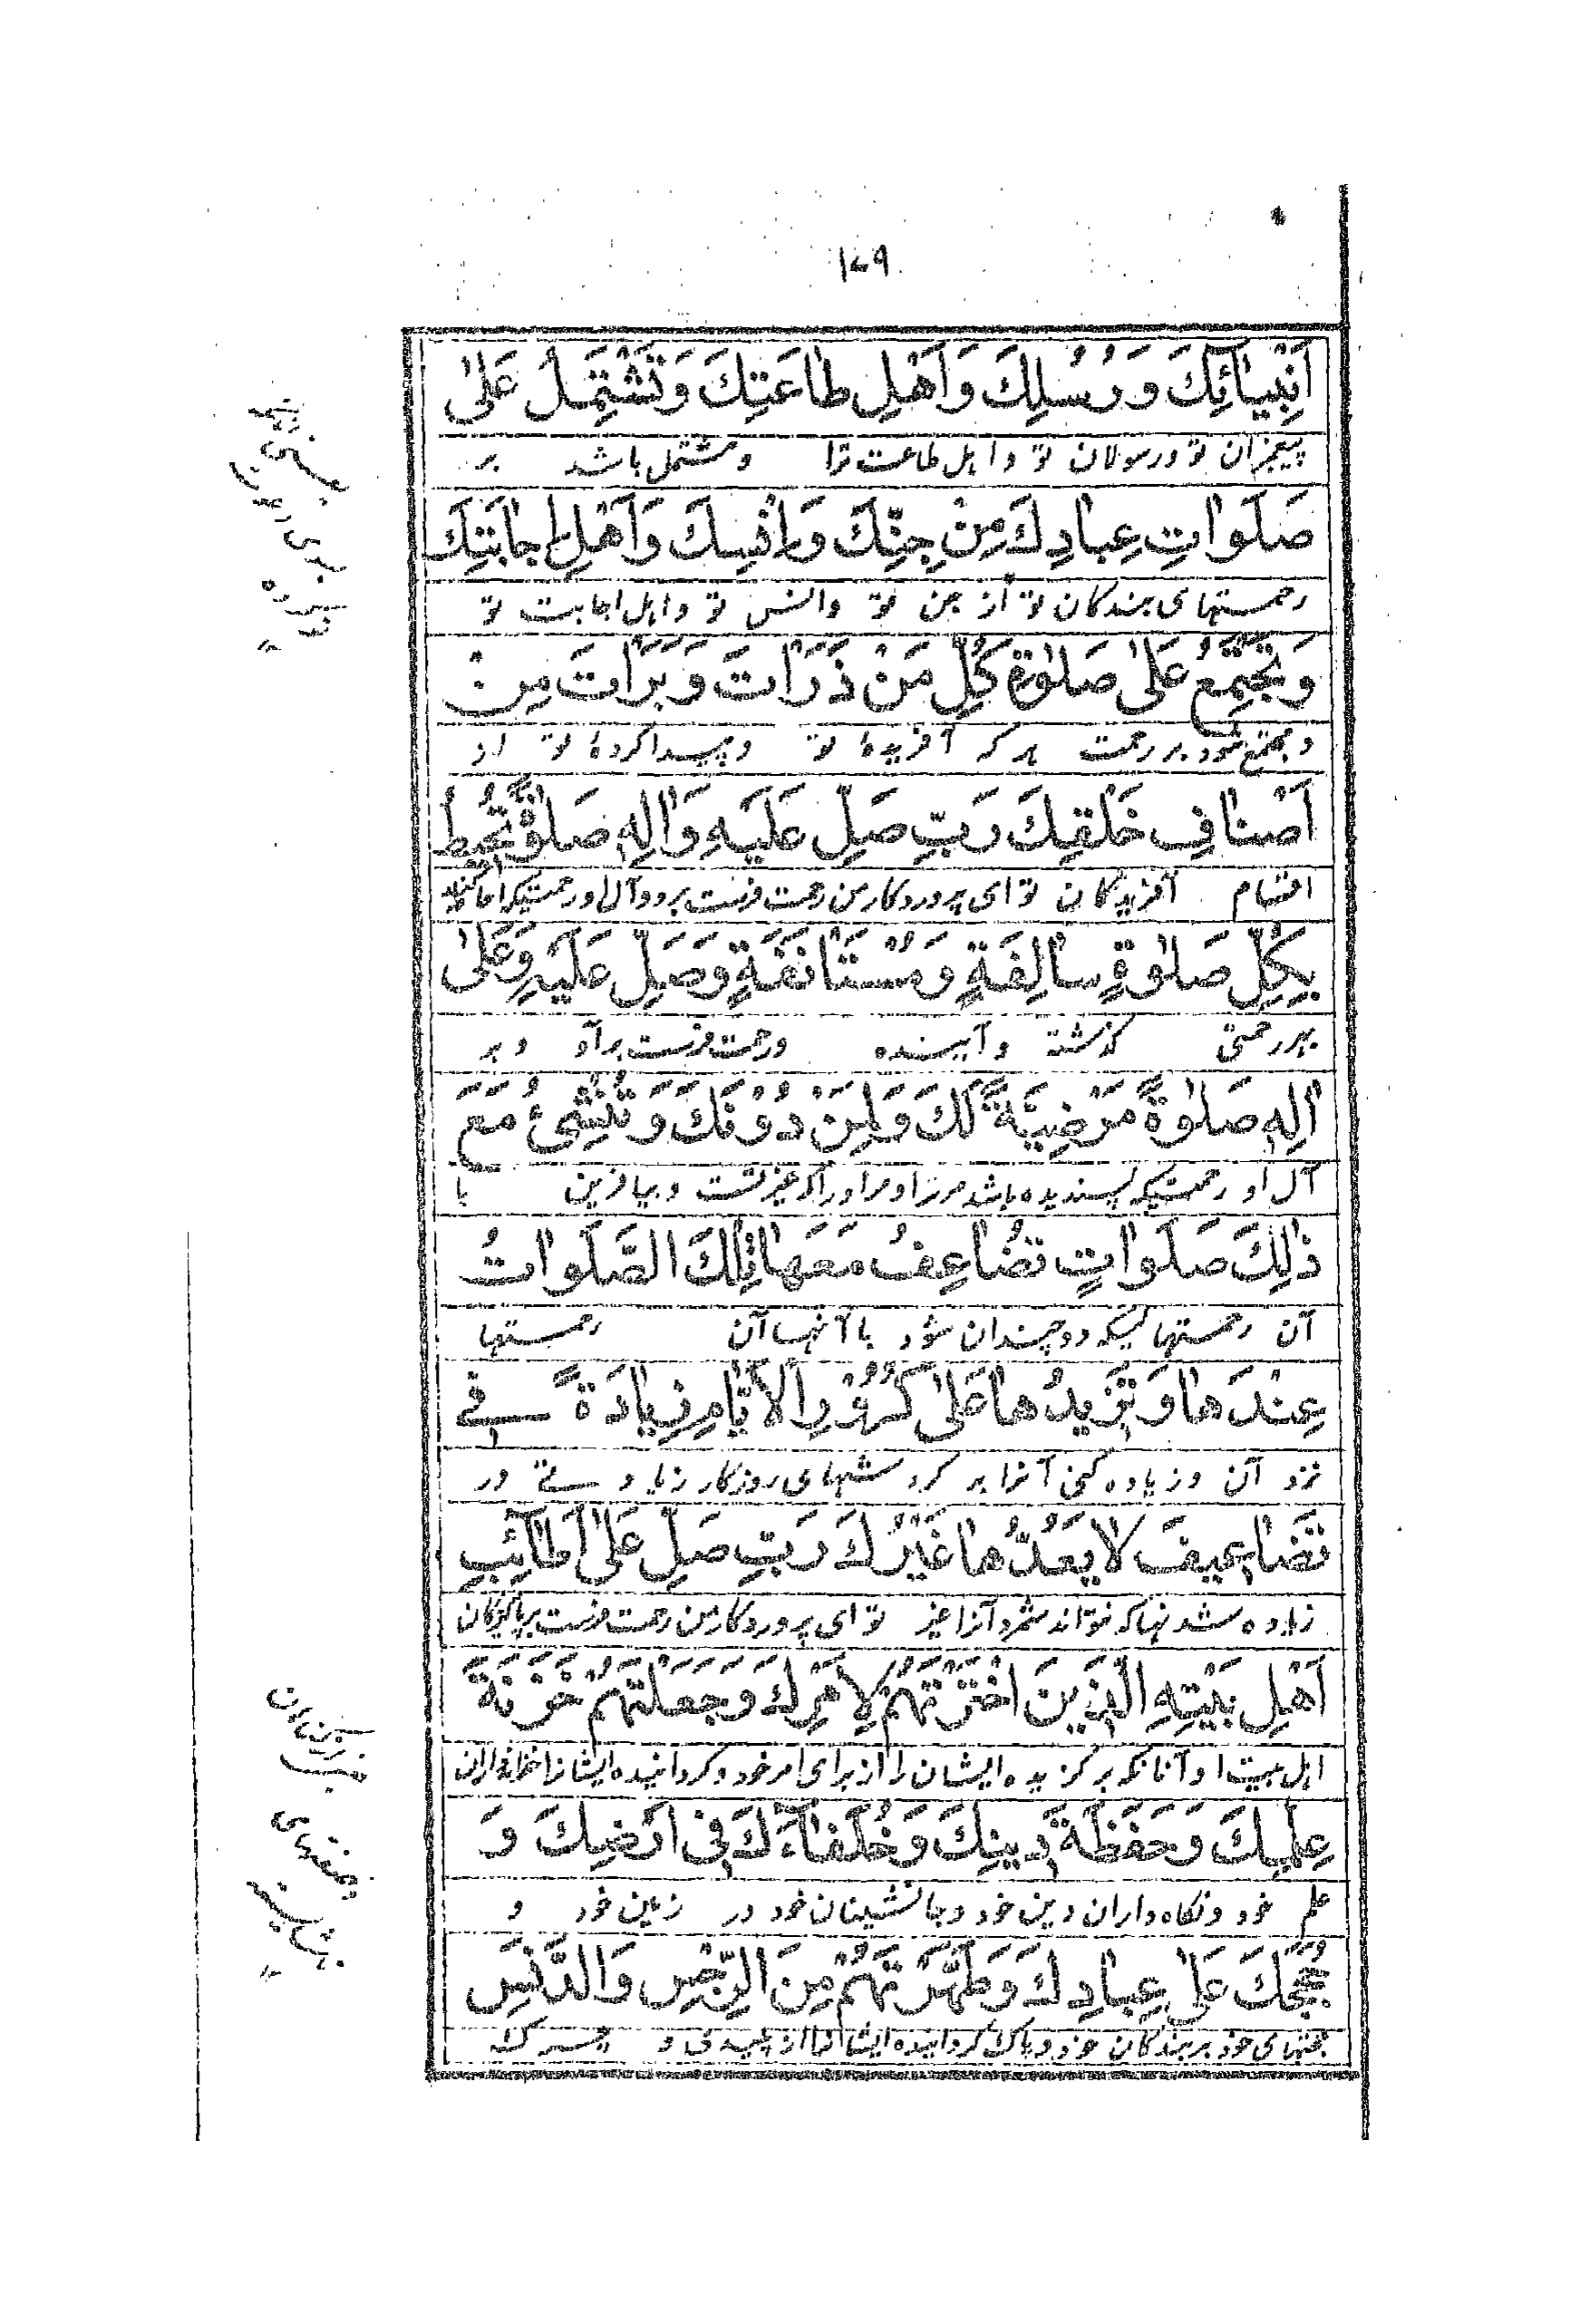 ۱۷۹
اَنْبِيائِكَ وَ رُسُلِكَ وَ اَهْلِ طاعَتِكَ وَ تَشْتَمِلُ عَلىٰ
پیغمبران تو و رسولان تو و اهل طاعت ترا و مشتمل باشد بر
صَلَواتِ عِبادِكَ مِنْ جِنِّكَ وَ اِنْسِكَ وَ اَهْلِ اِجابَتِكَ
رحمتهای بندکان تو از جن تو و انس تو و اهل اجابت تو
وَ تَجْتَمِعُ عَلىٰ صَلوٰةِ كُلِّ مَنْ ذَرَاْتَ وَ بَرَاْتَ مِنْ
و مجتمع شود بر رحمت هر که آفریدهٔ تو و پیدا کردهٔ تو از
اَصْنافِ خَلْقِكَ رَبِّ صَلِّ عَلَيْهِ وَ اٰلِهِ صَلوٰةً تُحيطُ
اقسام آفریدکان تو ای پروردکار من رحمت فرست برو و آل او رحمتیکه احاطه کند
بِكُلِّ صَلوٰةٍ سالِفَةٍ وَ مُسْتَاْنَفَةٍ وَ صَلِّ عَلَيْهِ وَ عَلىٰ
بهر رحمتی کذشته و آینده و رحمت فرست بر او و بر
اٰلِهِ صَلوٰةً مَرْضِيَّةً لَكَ وَ لِمَنْ دُوْنَكَ وَ تُنْشِئُ مَعَ
آل او رحمتیکه پسندیده باشد مر ترا و مر اورا که غیر تست و بیافرین با
ذٰلِكَ صَلَواتٍ تُضاعِفُ مَعَها تِلْكَ الصَّلَواتُ
آن رحمتهائیکه دو چندان شود با آنها آن رحمتها
عِنْدَها وَ تَزيدُها عَلىٰ كُرُوْرِ الْاَيّامِ زِيادَةً فے
نزد آن و زیاده کنی آنرا بر کردشهای روزکار زیادتے در
تَضاعيفَ لا يَعُدُّها غَيْرُكَ رَبِّ صَلِّ عَلىٰ اَطائِبِ
زیاده شدنها که نتواند شمرد آنرا غیر تو ای پروردکار من رحمت فرست بر پاکیزکان
اَهْلِ بَيْتِهِ الَّذينَ اخْتَرْتَهُمْ لِاَمْرِكَ وَ جَعَلْتَهُمْ خَزَنَةَ
اهل بیت او آنانکه بر کزیده ایشان را از برای امر خود و کردانیده ایشانرا خزانه داران
عِلْمِكَ وَ حَفَظَةَ دينِكَ وَ خُلَفاءَكَ فی اَرْضِكَ وَ
علم خود و نکاه داران دین خود و جانشینان خود در زمین خود و
حُجَجَكَ عَلىٰ عِبادِكَ وَ طَهَّرْتَهُمْ مِنَ الرِّجْسِ وَ الدَّنَسِ
حجتهای خود بر بندکان خود و پاک کردانیده ایشانرا از پلیدی و چرک